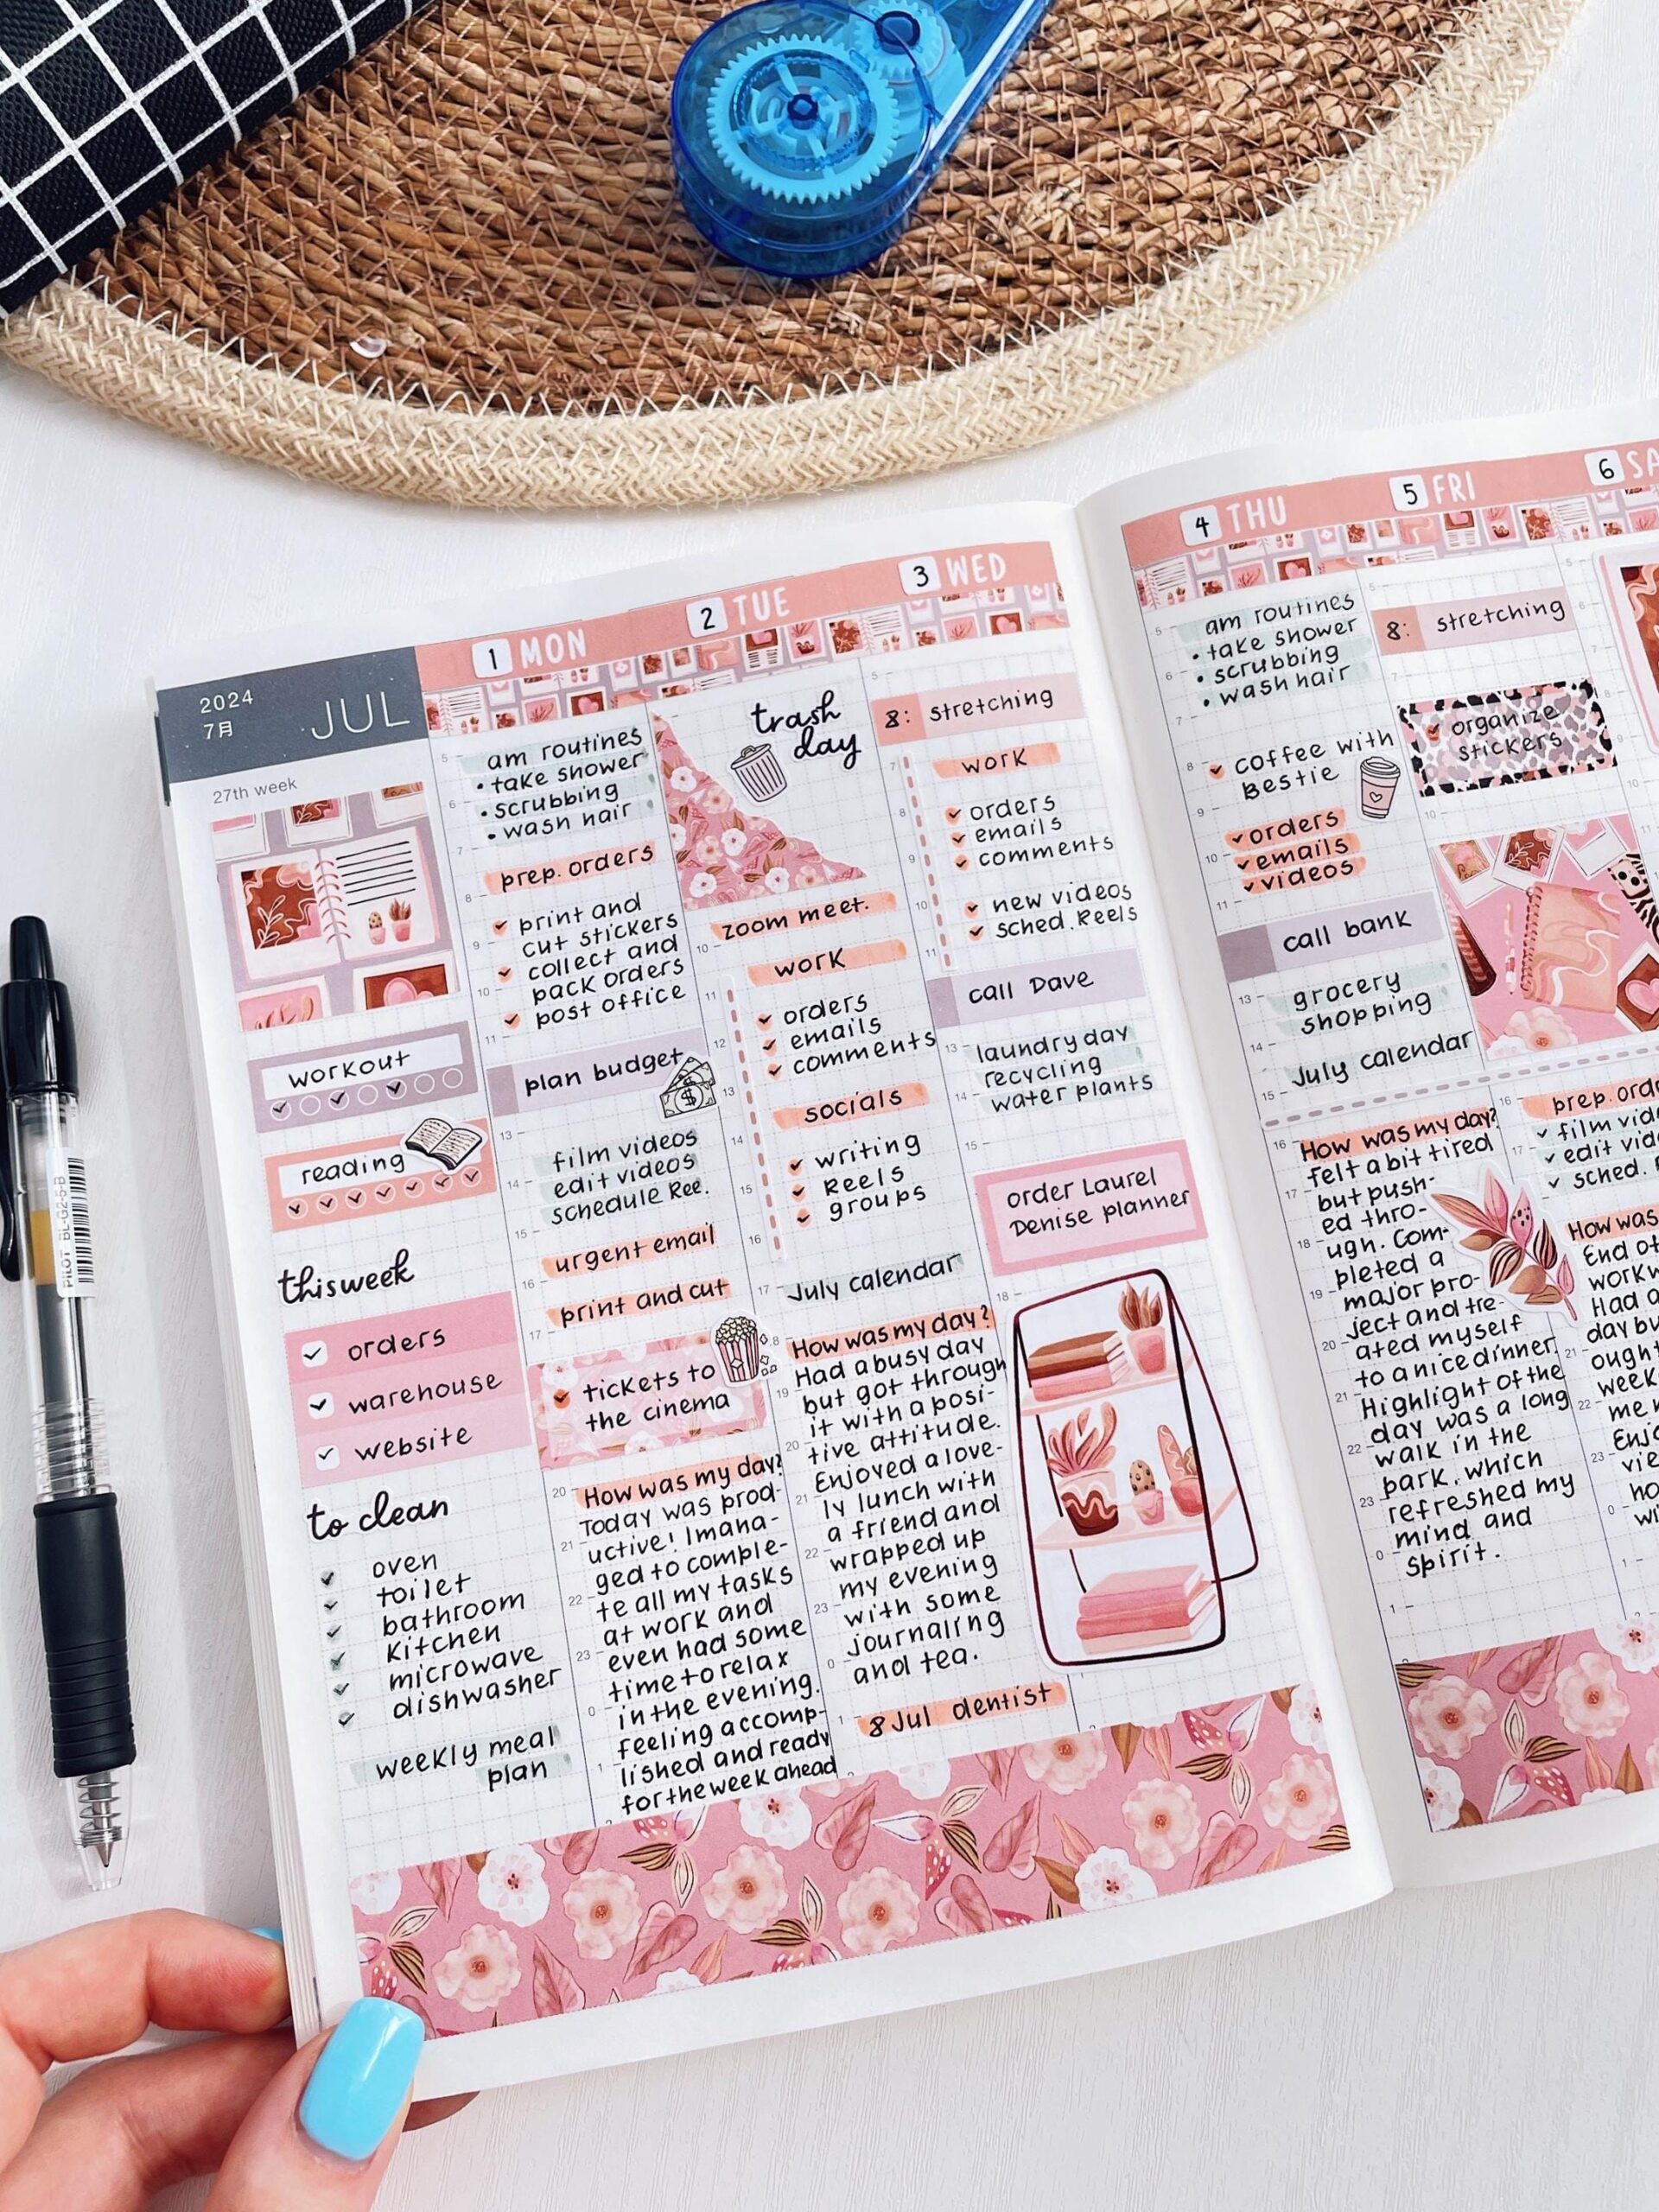 2024
7月
JUL
27th week
workout
reading
this week
orders
warehouse
website
to clean
oven
toilet
bathroom
kitchen
microwave
dishwasher
weekly meal
plan
1 MON
am routines
• take shower
• scrubbing
• wash hair
prep. orders
print and
cut stickers
collect and
pack orders
post office
plan budget
film videos
edit videos
schedule Ree.
urgent email
print and cut
tickets to
the cinema
How was my day?
Today was prod-
uctive! I mana-
ged to comple-
te all my tasks
at work and
even had some
time to relax
in the evening.
feeling accomp-
lished and ready
for the week ahead
2 TUE
trash
day
zoom meet.
work
orders
emails
comments
socials
writing
Reels
groups
July calendar
How was my day?
Had a busy day
but got through
it with a posi-
tive attitude.
Enjoyed a love-
ly lunch with
a friend and
wrapped up
my evening
with some
journaling
and tea.
8 Jul dentist
3 WED
8: stretching
work
orders
emails
comments
new videos
sched. Reels
call Dave
laundry day
recycling
water plants
order Laurel
Denise planner
4 THU
am routines
• take shower
• scrubbing
• wash hair
coffee with
Bestie
orders
emails
videos
call bank
grocery
shopping
July calendar
How was my day?
felt a bit tired
but push-
ed thro-
ugh. Com-
pleted a
major pro-
ject and tre-
ated myself
to a nice dinner.
Highlight of the
day was a long
walk in the
park, which
refreshed my
mind and
spirit.
5 FRI
8: stretching
organize
stickers
prep. ord
film vid
edit vid
sched. R
How was
End of
workw
Had a
day bu
ought
week
me
Enjo
vie
no
wi
6 SA
PILOT BL-G2-5-B